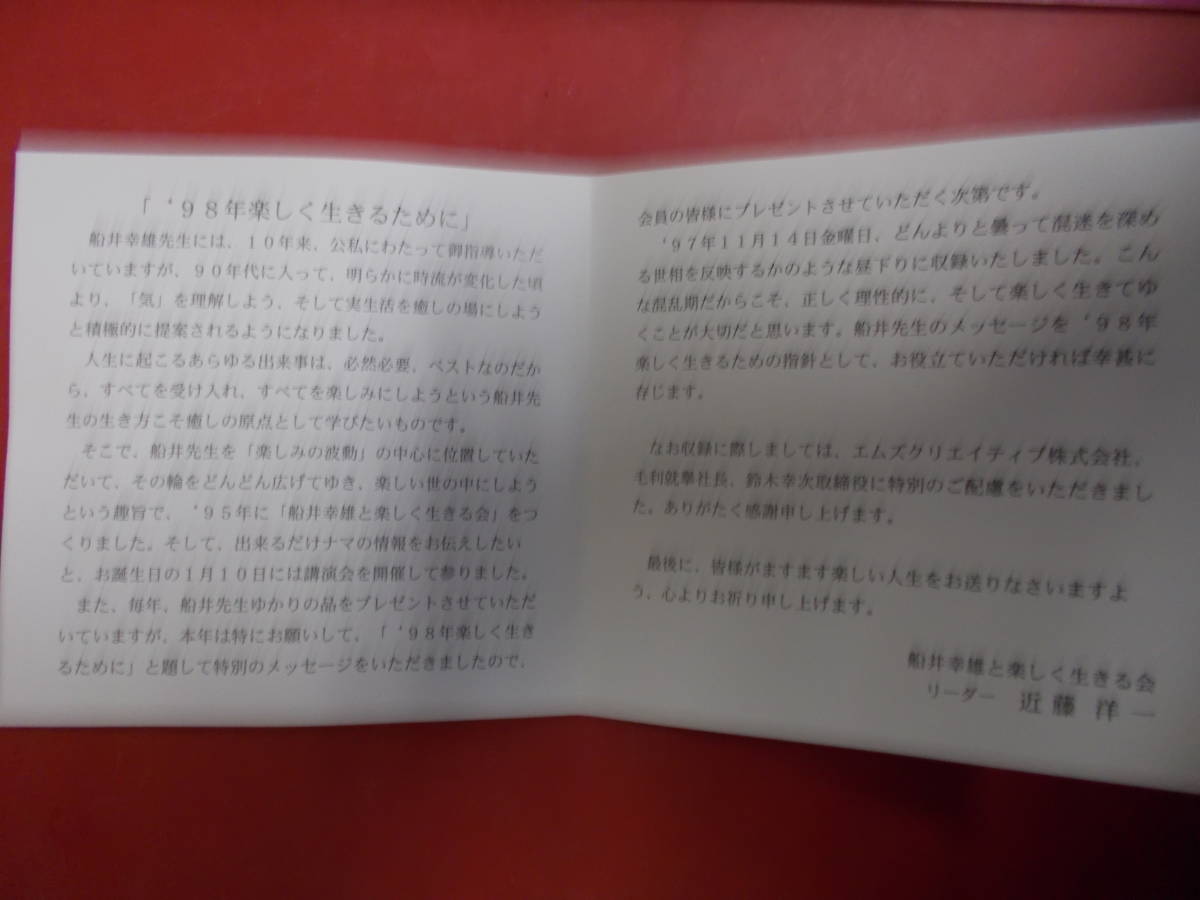 「'98年楽しく生きるために」
船井幸雄先生には、10年来、公私にわたって御指導いただ
いていますが、90年代に入って、明らかに時流が変化した頃
より、「気」を理解しよう、そして実生活を癒しの場にしよう
と積極的に提案されるようになりました。
人生に起こるあらゆる出来事は、必然必要、ベストなのだか
ら、すべてを受け入れ、すべてを楽しみにしようという船井先
生の生き方こそ癒しの原点として学びたいものです。
そこで、船井先生を「楽しみの波動」の中心に位置していた
だいて、その輪をどんどん広げてゆき、楽しい世の中にしよう
という趣旨で、'95年に「船井幸雄と楽しく生きる会」をつ
くりました。そして、出来るだけナマの情報をお伝えしたい
と、お誕生日の1月10日には講演会を開催して参りました。
また、毎年、船井先生ゆかりの品をプレゼントさせていただ
いていますが、本年は特にお願いして、「'98年楽しく生き
るために」と題して特別のメッセージをいただきましたので、
会員の皆様にプレゼントさせていただく次第です。
'97年11月14日金曜日、どんよりと曇って混迷を深め
る世相を反映するかのような昼下りに収録いたしました。こん
な混乱期だからこそ、正しく理性的に、そして楽しく生きてゆ
くことが大切だと思います。船井先生のメッセージを'98年
楽しく生きるための指針として、お役立ていただければ幸甚に
存じます。
なお収録に際しましては、エムズクリエイティブ株式会社、
毛利就擧社長、鈴木幸次取締役に特別のご配慮をいただきまし
た。ありがたく感謝申し上げます。
最後に、皆様がますます楽しい人生をお送りなさいますよ
う、心よりお祈り申し上げます。
船井幸雄と楽しく生きる会
リーダー 近藤洋一